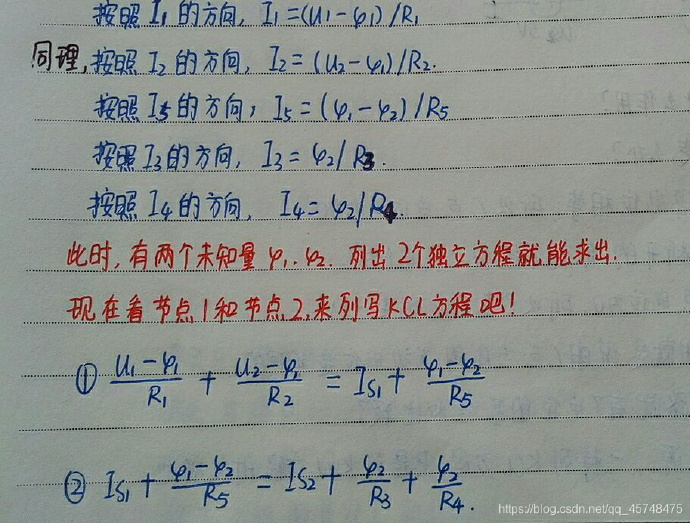 按照 I₁ 的方向, I₁=(u₁-φ₁)/R₁
同理,按照 I₂ 的方向, I₂=(u₂-φ₁)/R₂.
按照 I₅ 的方向, I₅=(φ₁-φ₂)/R₅
按照 I₃ 的方向, I₃=φ₂/R₃.
按照 I₄ 的方向, I₄=φ₂/R₄
此时,有两个未知量 φ₁.φ₂. 列出2个独立方程就能求出.
现在看节点1和节点2,来列写KCL方程吧!
① (u₁-φ₁)/R₁ + (u₂-φ₁)/R₂ = Is₁ + (φ₁-φ₂)/R₅
② Is₁ + (φ₁-φ₂)/R₅ = Is₂ + φ₂/R₃ + φ₂/R₄.
https://blog.csdn.net/qq_45748475